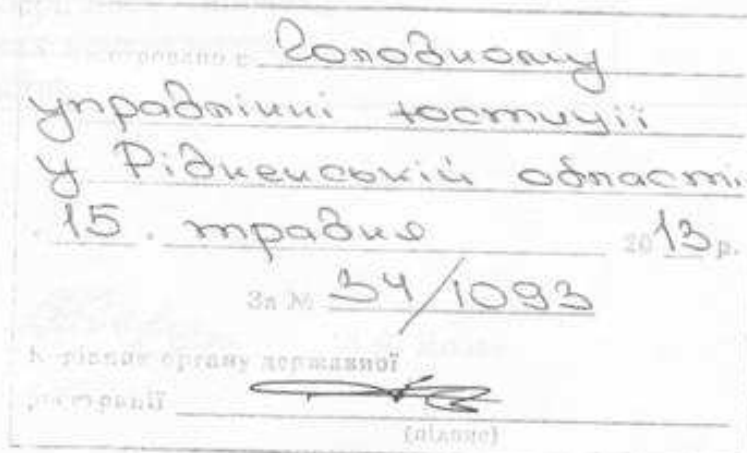 Головному
управлінні юстиції
у Рівненській області
15. травня 2013 р.
За № 34/1093
Керівник органу державної
реєстрації
(підпис)